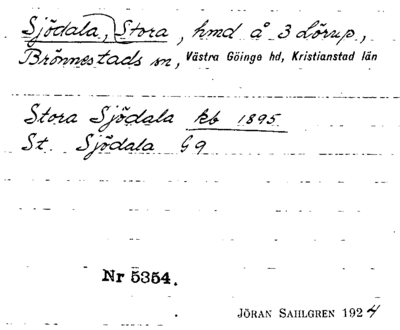 Sjödala, Stora, hmd å 3 Lörup.,
Brönnestads sn, Västra Göinge hd, Kristianstad län
Stora Sjödala kb 1895
St. Sjödala G 9
Nr 5354.
JÖRAN SAHLGREN 1924